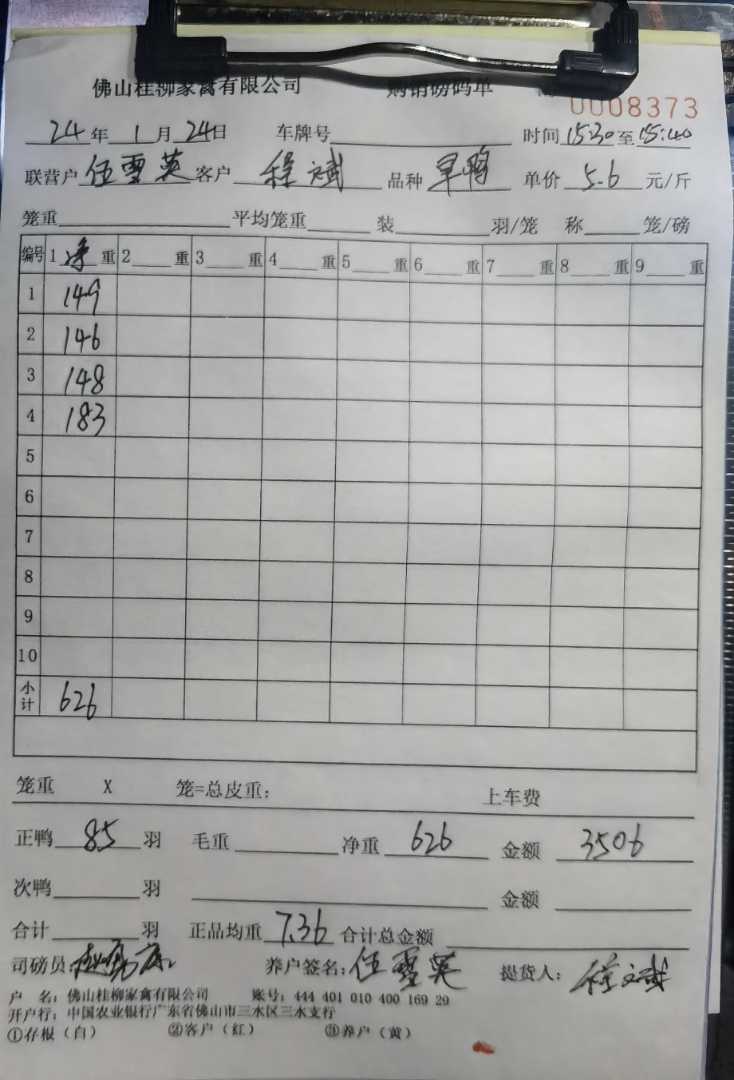 佛山桂柳家禽有限公司 购销磅码单 0008373
24年 1月 24日 车牌号 时间 15:30 至 15:40
联营户 伍雪英 客户 程斌 品种 旱鸭 单价 5.6 元/斤
笼重 平均笼重 装 羽/笼 称 笼/磅
编号 1 净 重 2 重 3 重 4 重 5 重 6 重 7 重 8 重 9 重
1 149
2 146
3 148
4 183
5
6
7
8
9
10
小计 626
笼重 X 笼=总皮重: 上车费
正鸭 85 羽 毛重 净重 626 金额 3506
次鸭 羽 金额
合计 羽 正品均重 7.36 合计总金额
司磅员: 养户签名: 伍雪英 提货人:
户 名: 佛山桂柳家禽有限公司 账号: 444 401 010 400 169 29
开户行: 中国农业银行广东省佛山市三水区三水支行
①存根(白) ②客户(红) ③养户(黄)